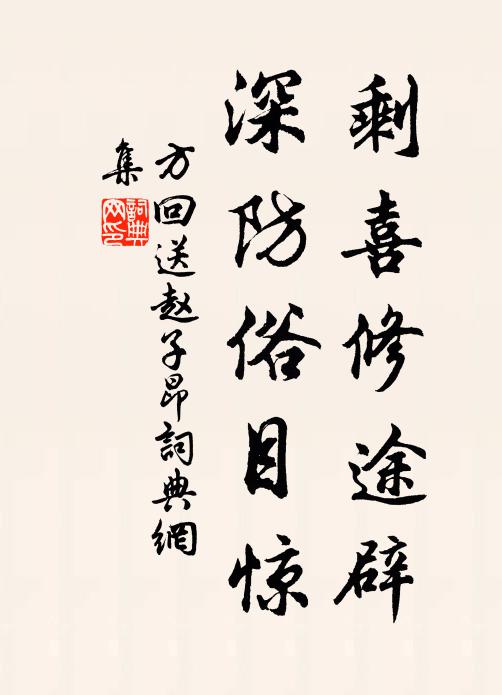 剩喜修途辟
深防俗目惊
方回送赵子昂詞典網
集
詞典
网印